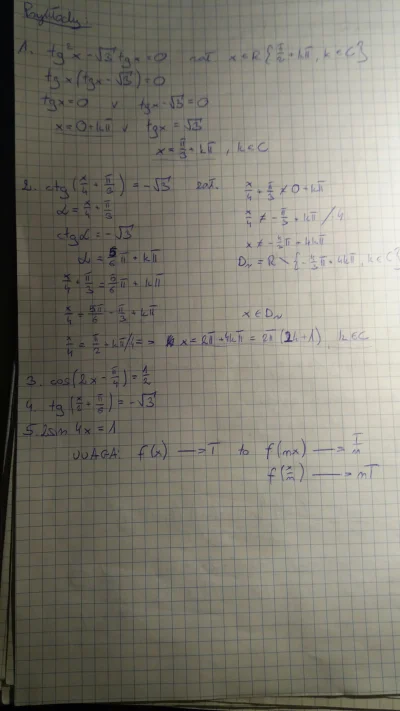 Przykłady:
1. tg²x - √3 tgx = 0 zał. x∈R\{π/2 + kπ, k∈C}
tgx(tgx - √3) = 0
tgx = 0 v tgx - √3 = 0
x = 0 + kπ v tgx = √3
x = π/3 + kπ, k∈C
2. ctg(x/4 + π/3) = -√3 zał. x/4 + π/3 ≠ 0 + kπ
α = x/4 + π/3 x/4 ≠ -π/3 + kπ /·4
ctgα = -√3 x ≠ -4/3π + 4kπ
α = 5/6π + kπ Dₙ = R \ {-4/3π + 4kπ, k∈C}
x/4 + π/3 = 5/6π + kπ
x/4 = 5π/6 - π/3 + kπ x∈Dₙ
x/4 = π/2 + kπ /·4 => x = 2π + 4kπ = 2π(2k+1), k∈C
3. cos(2x - π/4) = 1/2
4. tg(x/2 + π/6) = -√3
5. 2sin 4x = 1
UWAGA: f(x) → T to f(mx) → T/m
f(x/m) → mT